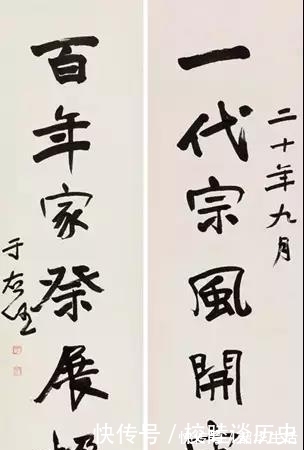 二十年九月
一代宗風開
百年家祭展
于右任
快传号／校畦谈历史